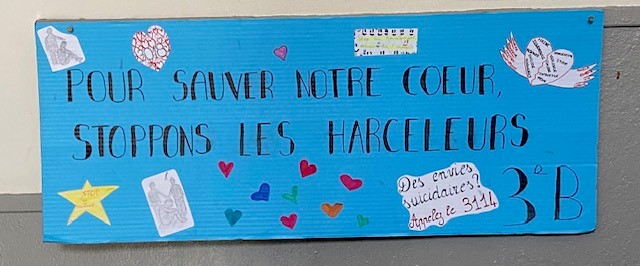 POUR SAUVER NOTRE COEUR,
STOPPONS LES HARCELEURS
Des envies
suicidaires?
Appelez le 3114
3e B